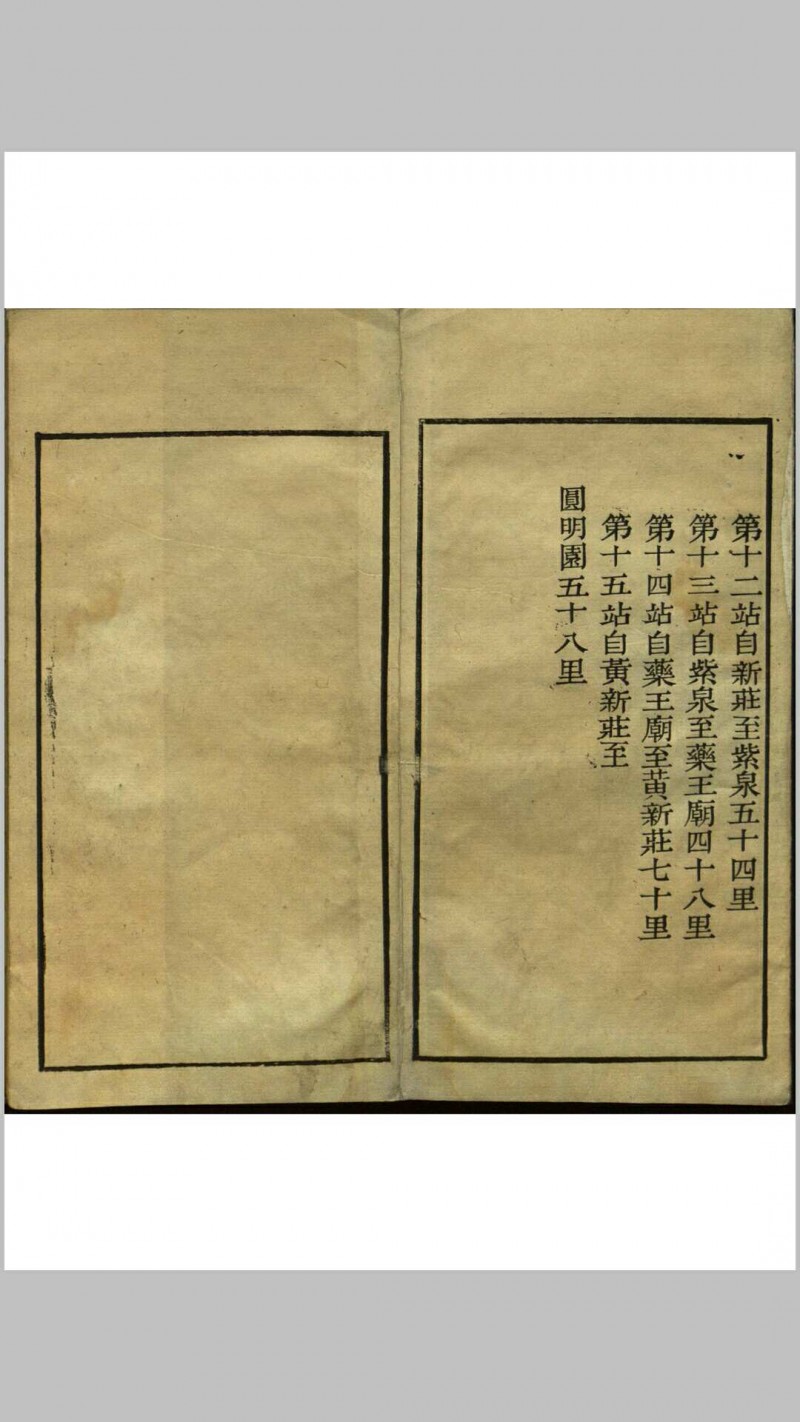 第十二站自新莊至紫泉五十四里
第十三站自紫泉至藥王廟四十八里
第十四站自藥王廟至黃新莊七十里
第十五站自黃新莊至
圓明園五十八里